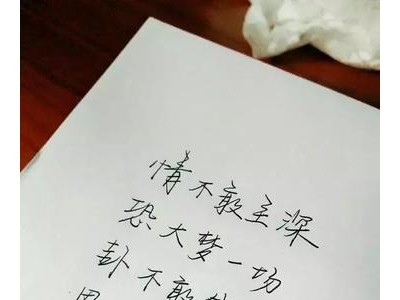 情不敢至深
恐大梦一场
卦不敢